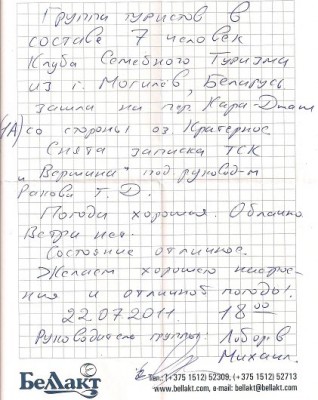 Группа туристов в
составе 7 человек
Клуба Семейного Туризма
из г. Могилёв, Беларусь
зашли на пер. Кара-Джаш
(1А) со стороны оз. Кратерное.
Снята записка ТСК
"Вершина" под руковод-м
Ракова Т. Д.
Погода хорошая. Облачно
Ветра нет.
Состояние отличное.
Желаем хорошего настрое-
ния и отличной погоды!
22.07.2011. 18 00
Руководитель группы:
Михаил.
БеЛЛакт
Тел.: (+375 1512) 52309, (+375 1512) 52713
www.bellakt.com, e-mail: bellakt@bellakt.com